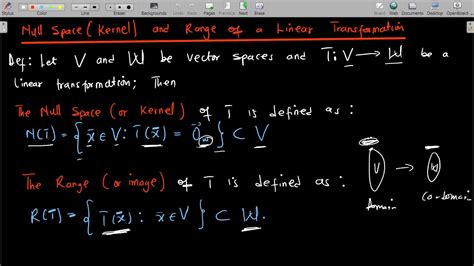 Color
Background
Style
Eraser
Board
Web
Documents
Show Desktop
OpenBoard
Null Space (Kernel) and Range of a Linear Transformation
Def: Let V and W be vector spaces and T: V → W be a
linear transformation; Then
The Null Space (or kernel) of T is defined as :
N(T) = { x̄ ∈ V : T(x̄) = 0̄_W } ⊂ V
The Range (or image) of T is defined as :
R(T) = { T(x̄) : x̄ ∈ V } ⊂ W.
V → W
domain
Co-domain